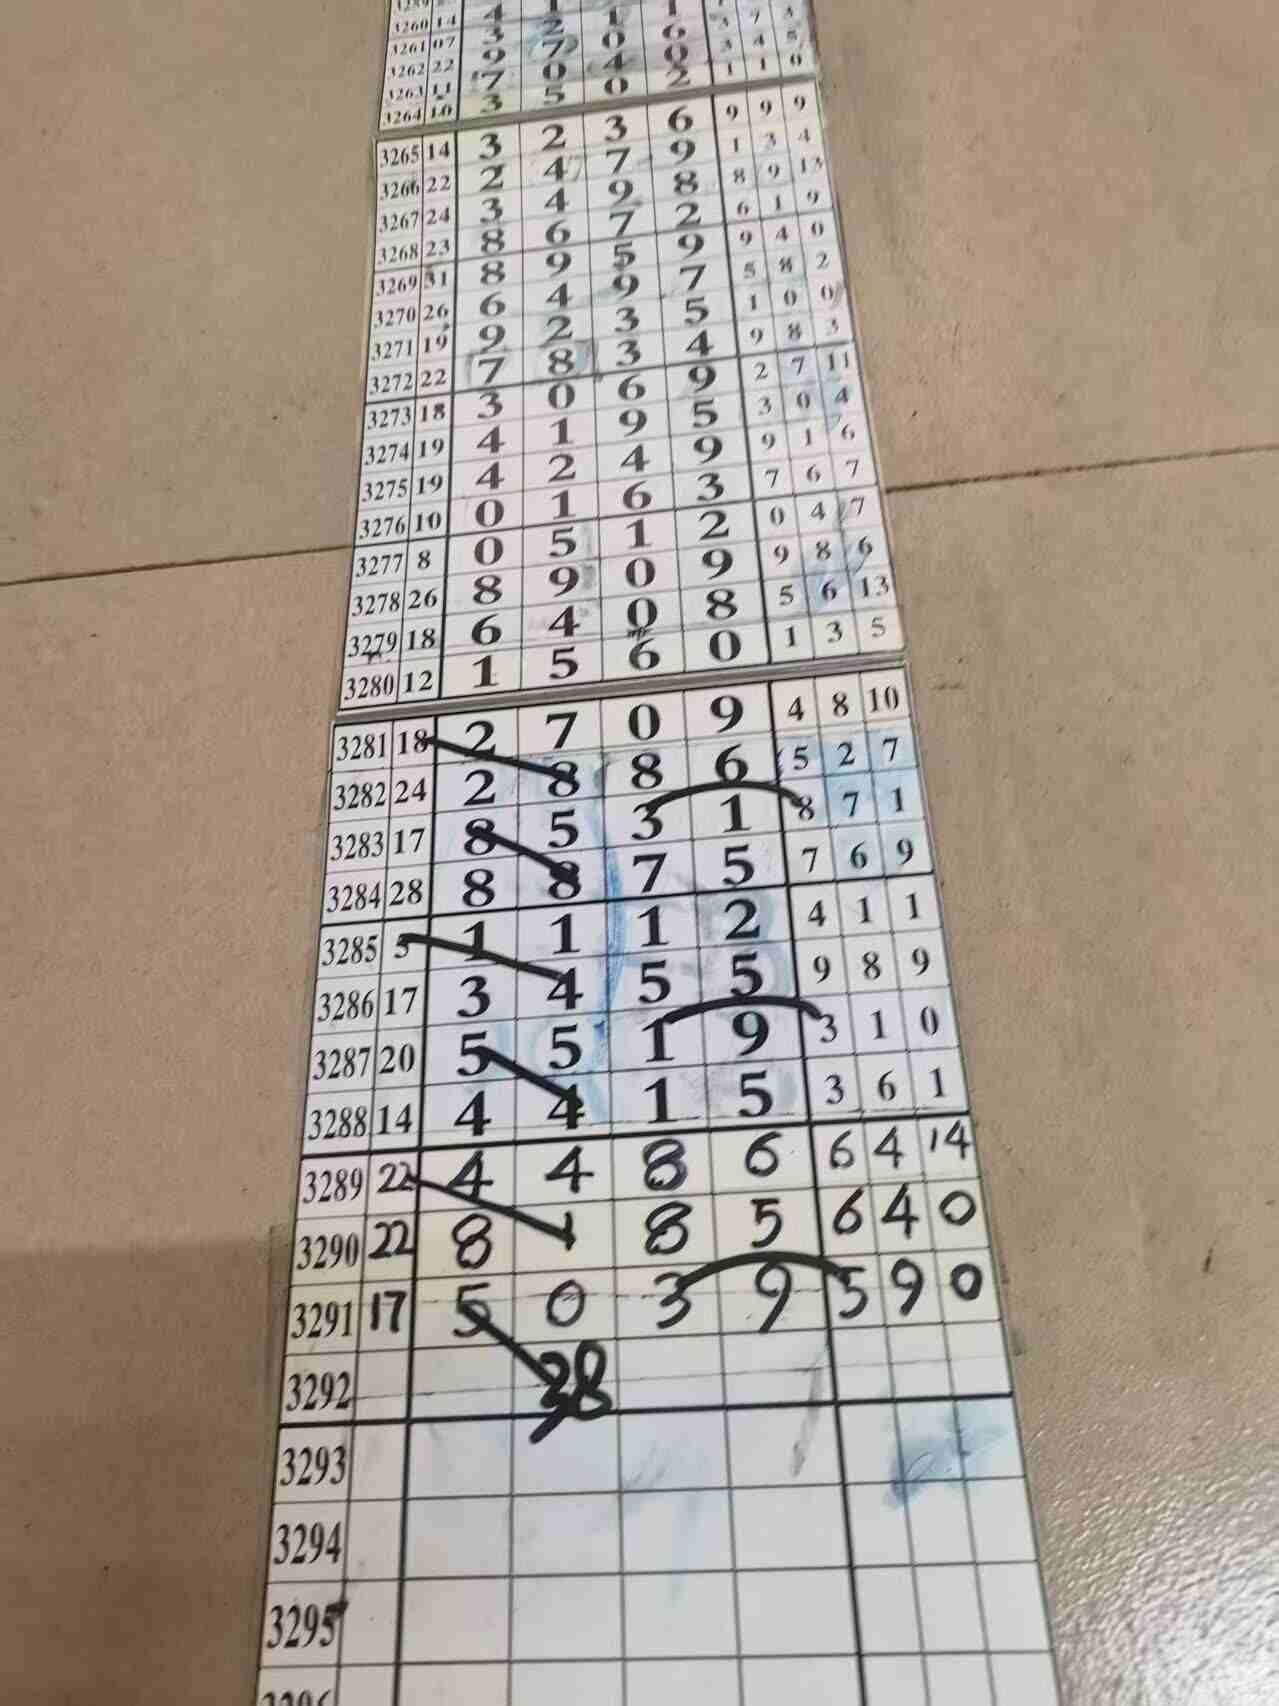 3260 14 4 1 1 1 3 7 3
3261 07 3 2 0 6 3 4 5
3262 22 9 7 4 0 1 1 0
3263 11 7 0 0 2
3264 10 3 5
3265 14 3 2 3 6 9 9 9
3266 22 2 4 7 9 1 3 4
3267 24 3 4 9 8 8 9 13
3268 23 8 6 7 2 6 1 9
3269 31 8 9 5 9 9 4 0
3270 26 6 4 9 7 5 8 2
3271 19 9 2 3 5 1 0 0
3272 22 7 8 3 4 9 8 3
3273 18 3 0 6 9 2 7 11
3274 19 4 1 9 5 3 0 4
3275 19 4 2 4 9 9 1 6
3276 10 0 1 6 3 7 6 7
3277 8 0 5 1 2 0 4 7
3278 26 8 9 0 9 9 8 6
3279 18 6 4 0 8 5 6 13
3280 12 1 5 6 0 1 3 5
3281 18 2 7 0 9 4 8 10
3282 24 2 8 8 6 5 2 7
3283 17 8 5 3 1 8 7 1
3284 28 8 8 7 5 7 6 9
3285 5 1 1 1 2 4 1 1
3286 17 3 4 5 5 9 8 9
3287 20 5 5 1 9 3 1 0
3288 14 4 4 1 5 3 6 1
3289 22 4 4 8 6 6 4 14
3290 22 8 1 8 5 6 4 0
3291 17 5 0 3 9 5 9 0
3292 38
3293
3294
3295